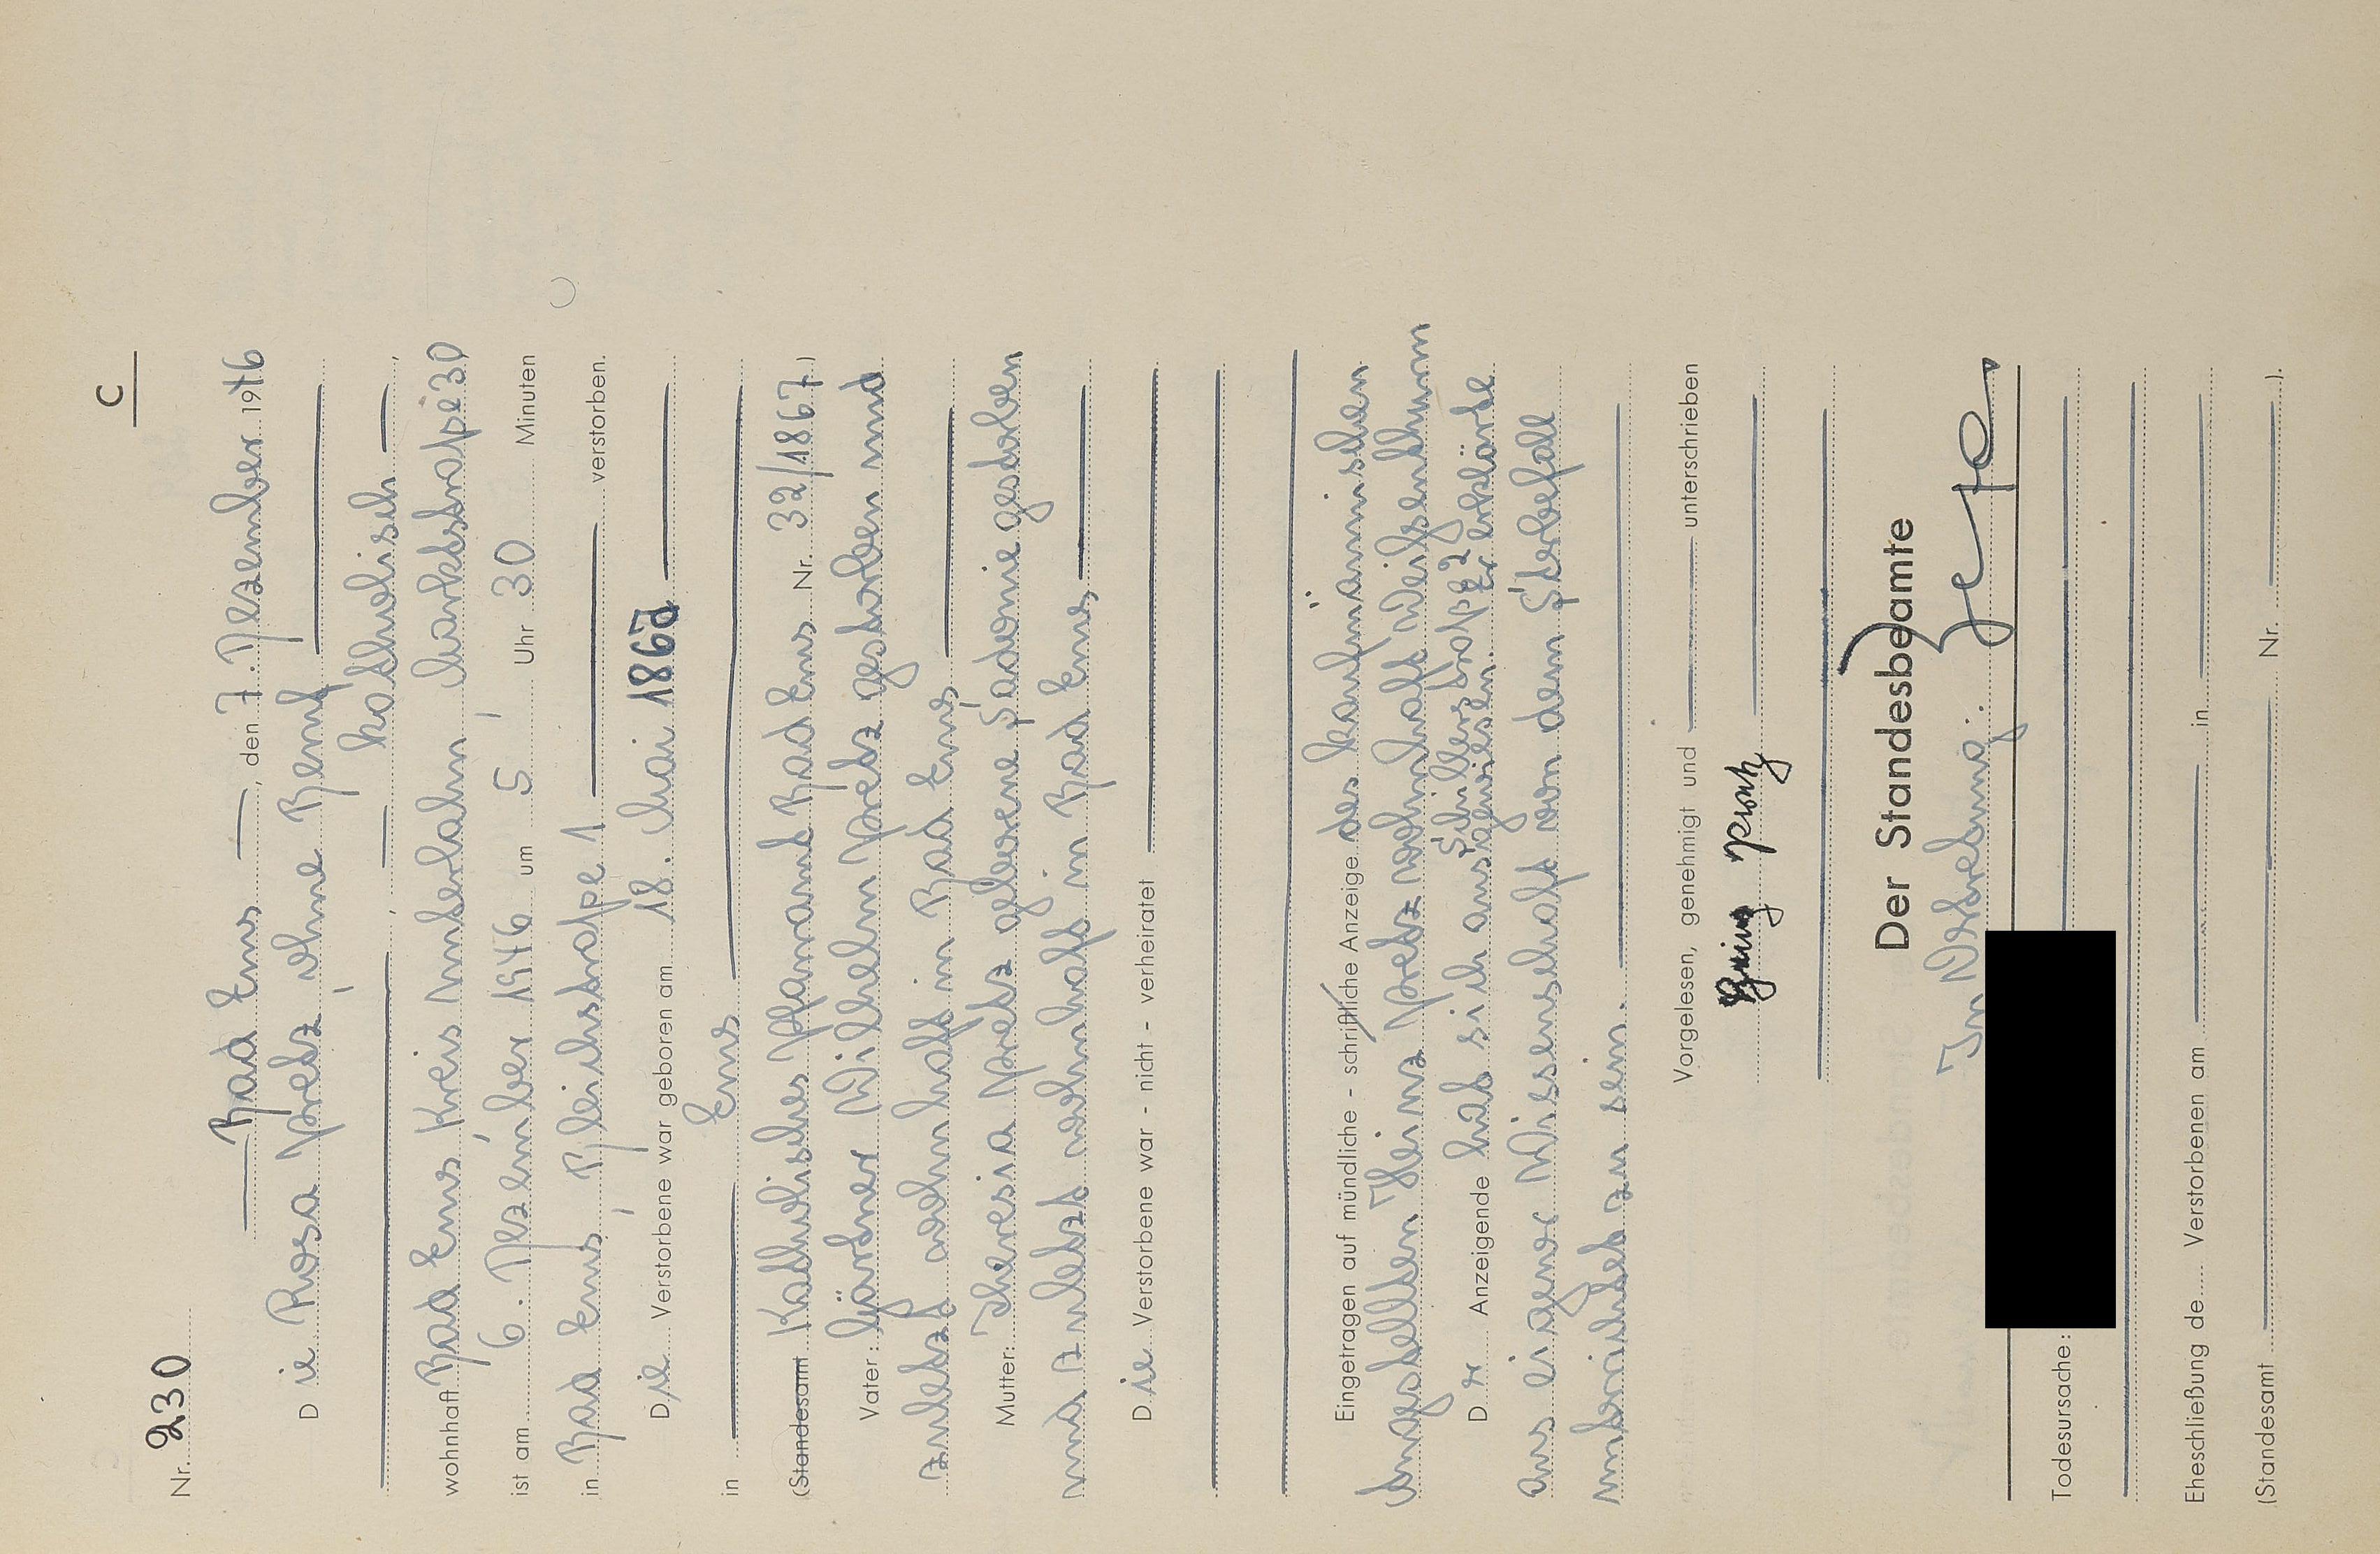 C
Nr. 230
Bad Ems, den 7. Dezember 1946
Die Rosa Pretz, ohne Beruf
, katholisch,
wohnhaft Bad Ems Kreis Unterlahn Marktstraße 30
ist am 6. Dezember 1946 um 5 Uhr 30 Minuten
in Bad Ems, Bleichstraße 1 verstorben.
Die Verstorbene war geboren am 18. Mai 1867
in Ems
(Standesamt Katholisches Pfarramt Bad Ems Nr. 32/1867)
Vater: Gärtner Wilhelm Pretz gestorben und
zuletzt wohnhaft in Bad Ems
Mutter: Theresia Pretz geborene gestorben
und zuletzt wohnhaft in Bad Ems
Die Verstorbene war - nicht - verheiratet
Eingetragen auf mündliche - schriftliche Anzeige des kaufmännischen
Angestellten Heinz Pretz wohnhaft Weißenthurm
Schillerstraße 2
Der Anzeigende hat sich ausgewiesen. Er erklärte
aus eigener Wissenschaft von dem Sterbefall
unterrichtet zu sein.
Vorgelesen, genehmigt und unterschrieben
Der Standesbeamte
In Vertretung:
Todesursache:
Eheschließung de Verstorbenen am in
(Standesamt Nr. ).